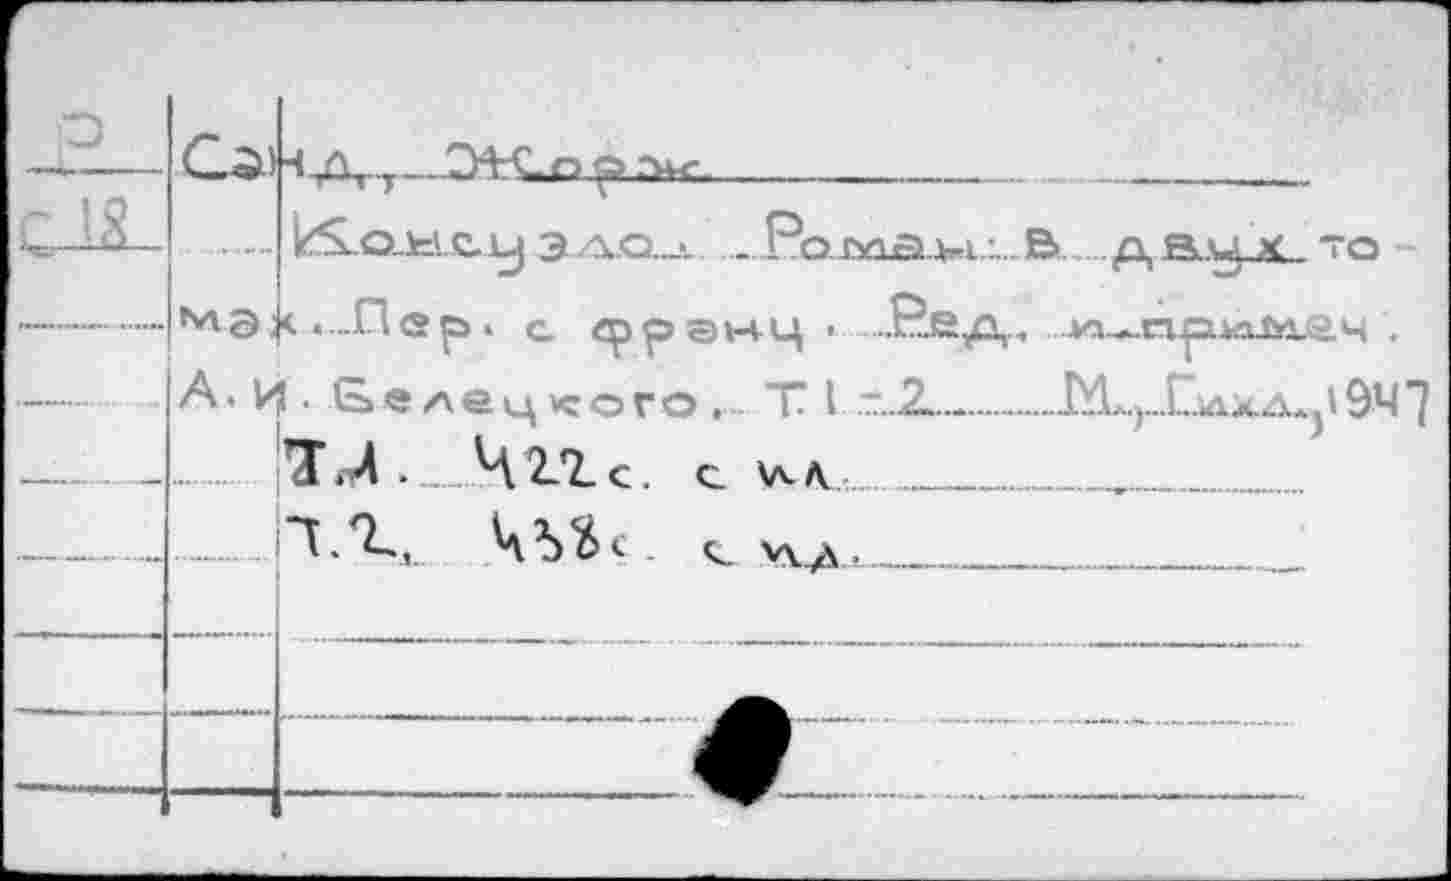 Р Санд, Жорж
С 18 Консуэло. Роман в двух то
мах. Пер. с франц. Ред. и примеч.
А. И. Белецкого. Т. 1-2 М., Гихл, 1947
Т.1. 422 с. с ил.
Т.2., 438 с. с ил.